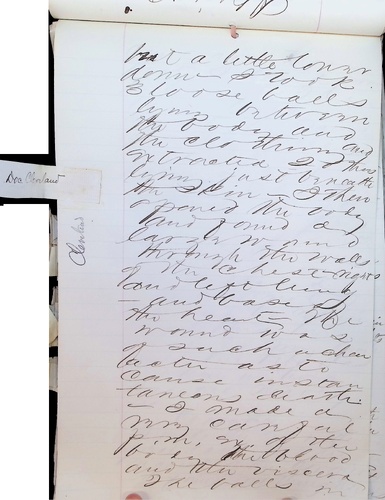 but a little lower
down I took
3 loose balls
lying between
the body and
the clothing and
extracted 2 others
lying just beneath
the skin I then
opened the body
and found a
large wound
through the walls
of the chest right
and left lung
and base of
the heart The
wound was
of such a char
acter as to
cause instan
taneous death
I made a
very careful
p.m. ex. of the
body the blood
and the viscera
The balls in
Doc Cleland
Cleland